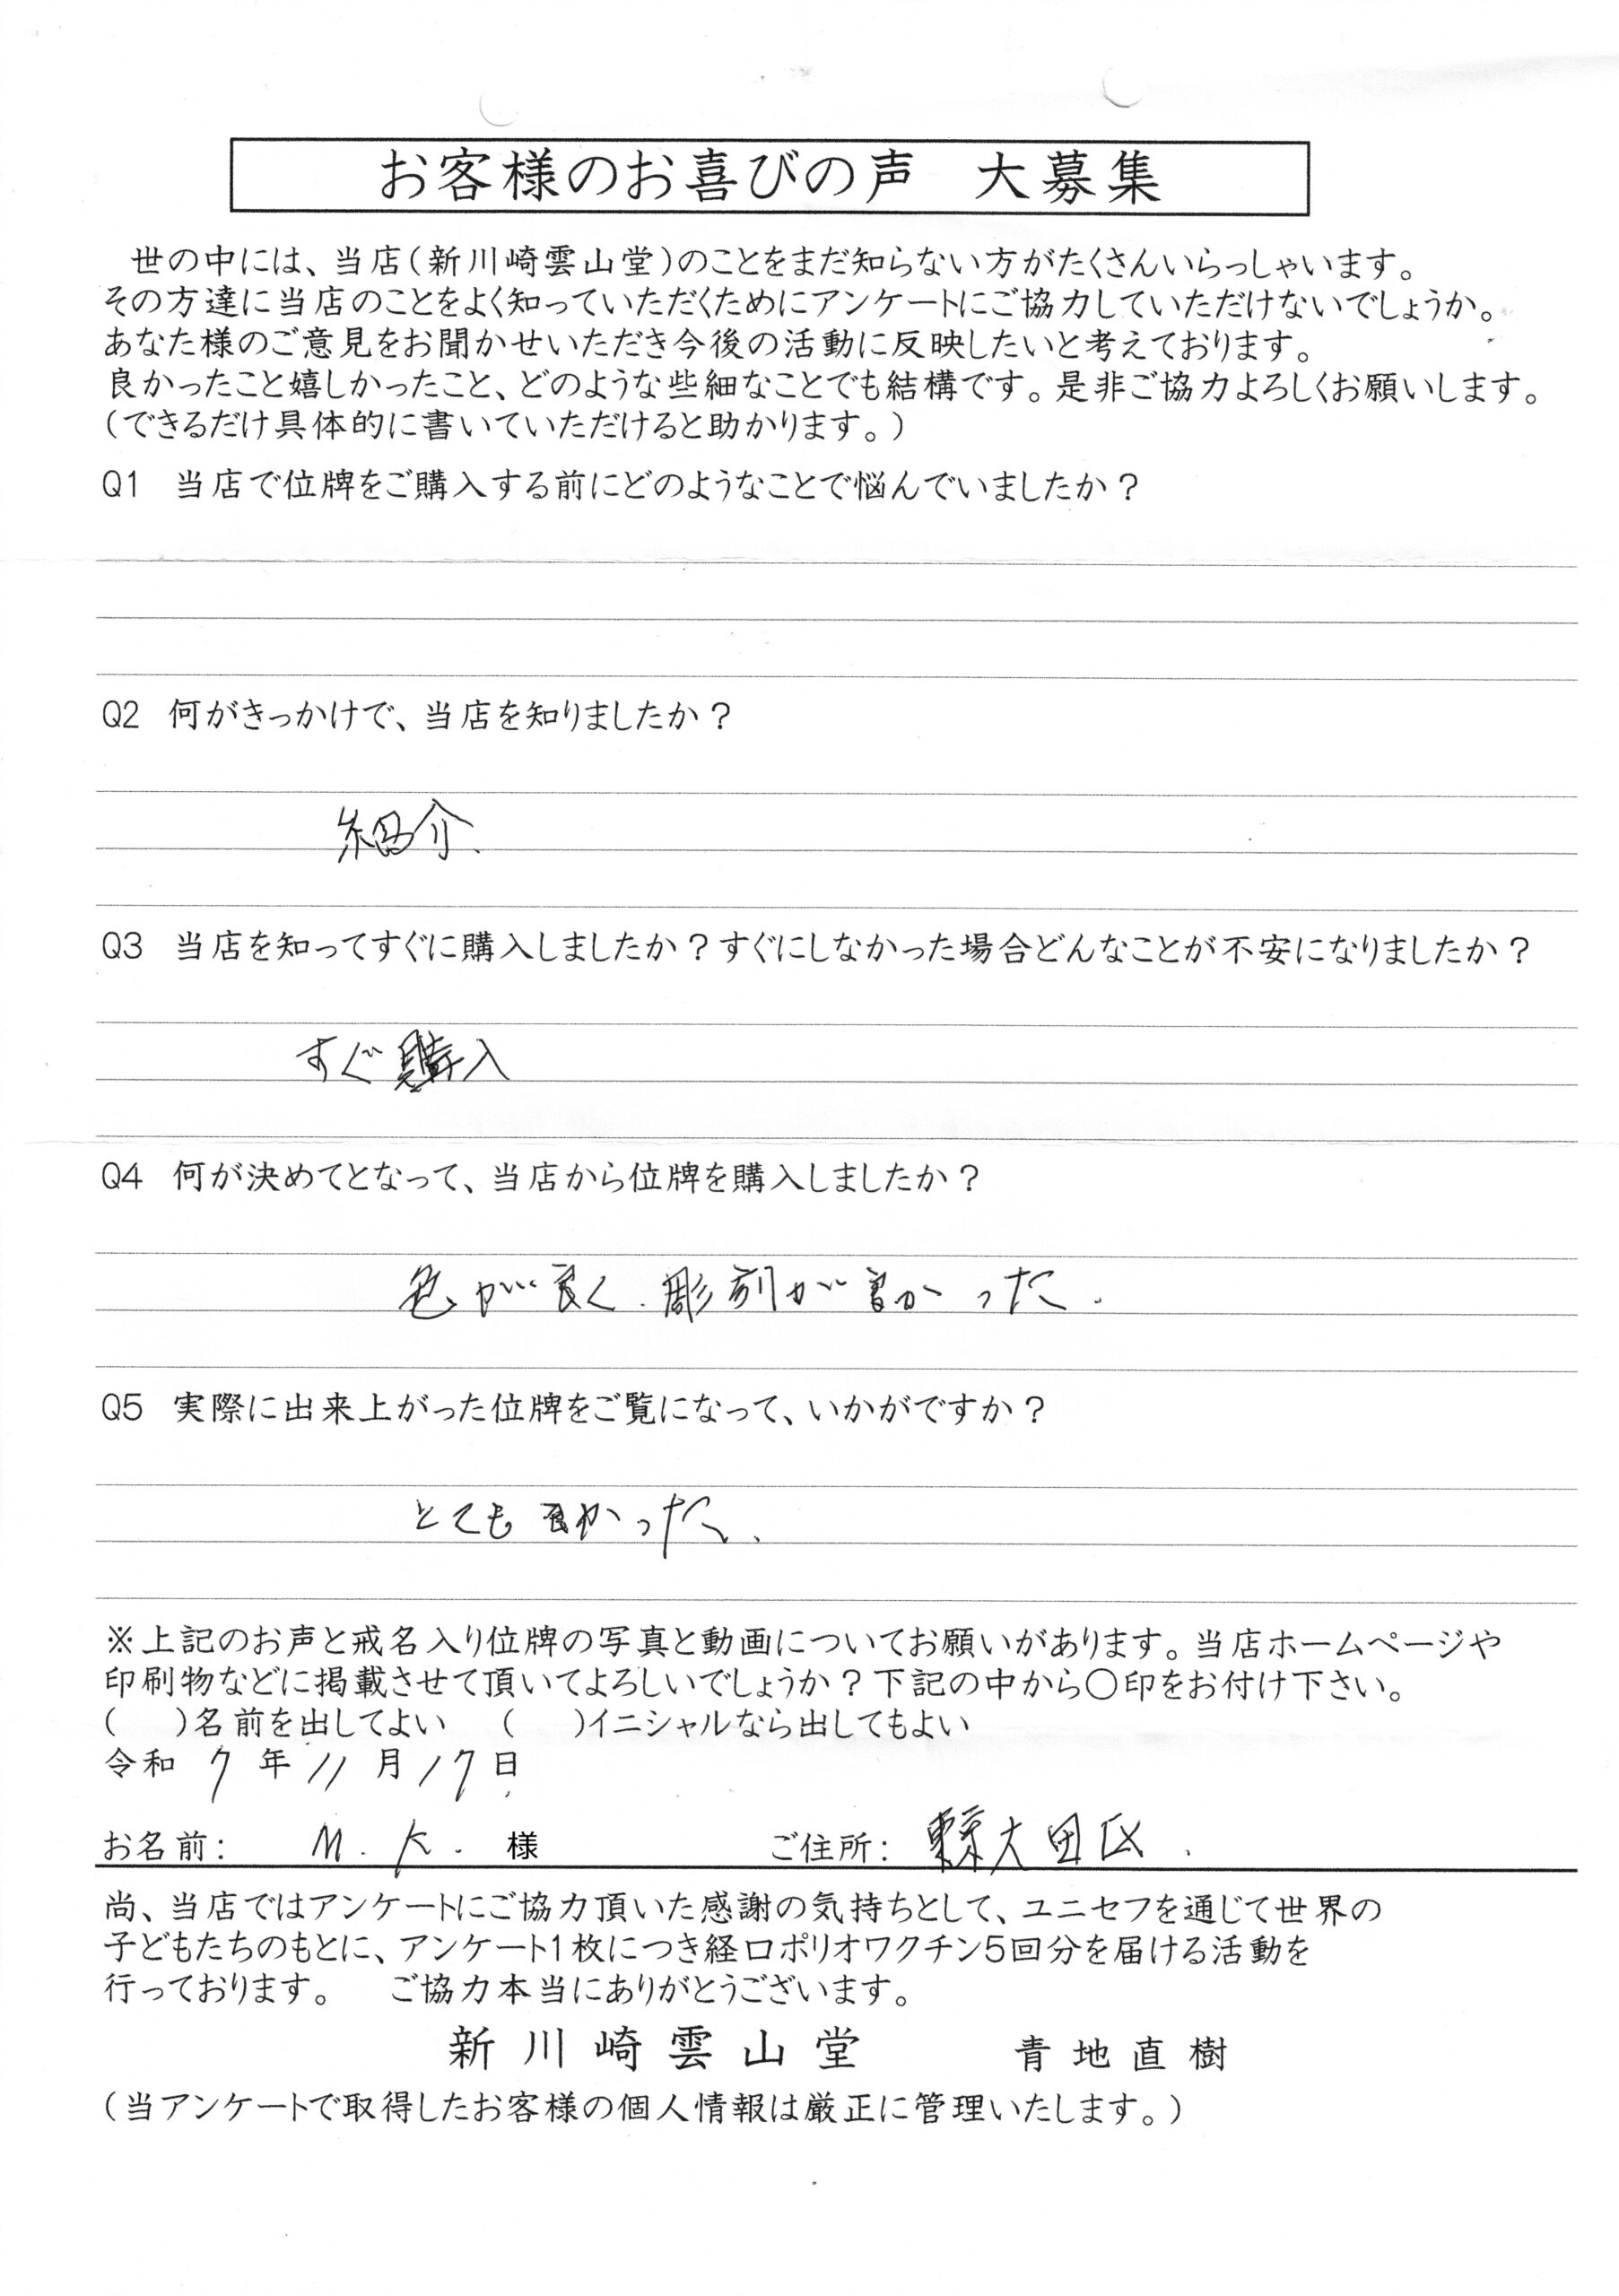 お客様のお喜びの声　大募集
世の中には、当店(新川崎雲山堂)のことをまだ知らない方がたくさんいらっしゃいます。
その方達に当店のことをよく知っていただくためにアンケートにご協力していただけないでしょうか。
あなた様のご意見をお聞かせいただき今後の活動に反映したいと考えております。
良かったこと嬉しかったこと、どのような些細なことでも結構です。是非ご協力よろしくお願いします。
(できるだけ具体的に書いていただけると助かります。)
Q1　当店で位牌をご購入する前にどのようなことで悩んでいましたか？
Q2　何がきっかけで、当店を知りましたか？
紹介.
Q3　当店を知ってすぐに購入しましたか？すぐにしなかった場合どんなことが不安になりましたか？
すぐ購入
Q4　何が決めてとなって、当店から位牌を購入しましたか？
色が良く.彫刻が良かった.
Q5　実際に出来上がった位牌をご覧になって、いかがですか？
とても良かった.
※上記のお声と戒名入り位牌の写真と動画についてお願いがあります。当店ホームページや
印刷物などに掲載させて頂いてよろしいでしょうか？下記の中から〇印をお付け下さい。
(　　)名前を出してよい　(　　)イニシャルなら出してもよい
令和 7 年 11 月 17 日
お名前：　M. K. 様　ご住所：東京大田区.
尚、当店ではアンケートにご協力頂いた感謝の気持ちとして、ユニセフを通じて世界の
子どもたちのもとに、アンケート1枚につき経口ポリオワクチン5回分を届ける活動を
行っております。　ご協力本当にありがとうございます。
新川崎雲山堂　青地直樹
(当アンケートで取得したお客様の個人情報は厳正に管理いたします。)